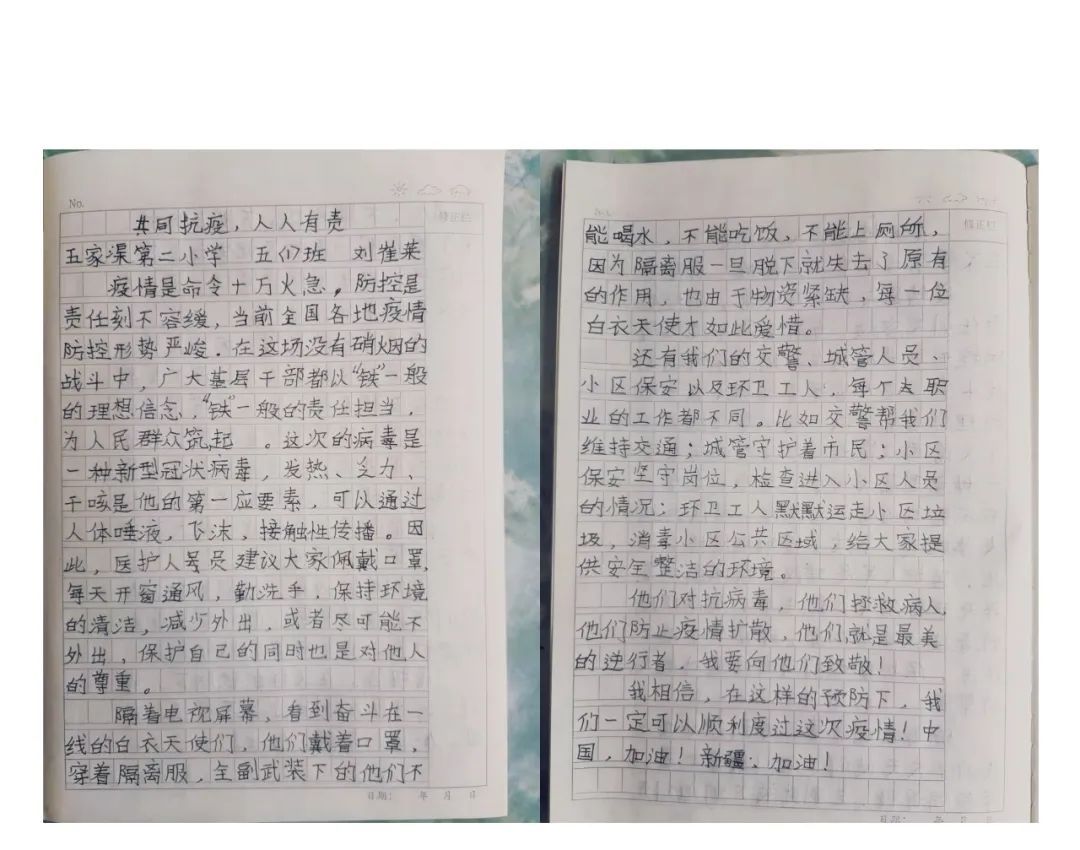 No.
修正栏
共同抗疫，人人有责
五家渠第二小学 五(1)班 刘崔莱
疫情是命令十万火急。防控是
责任刻不容缓，当前全国各地疫情
防控形势严峻．在这场没有硝烟的
战斗中，广大基层干部都以“铁”一般
的理想信念，“铁”一般的责任担当，
为人民群众筑起 。这次的病毒是
一种新型冠状病毒，发热、乏力、
干咳是他的第一应要素，可以通过
人体唾液，飞沫，接触性传播。因
此，医护人员建议大家佩戴口罩，
每天开窗通风，勤洗手，保持环境
的清洁，减少外出，或者尽可能不
外出，保护自己的同时也是对他人
的尊重。
隔着电视屏幕，看到奋斗在一
线的白衣天使们，他们戴着口罩，
穿着隔离服，全副武装下的他们不
日期： 年 月 日
修正栏
能喝水，不能吃饭，不能上厕所，
因为隔离服一旦脱下就失去了原有
的作用，也由于物资紧缺，每一位
白衣天使才如此爱惜。
还有我们的交警、城管人员、
小区保安以及环卫工人，每个职
业的工作都不同。比如交警帮我们
维持交通；城管守护着市民；小区
保安坚守岗位，检查进入小区人员
的情况；环卫工人默默运走小区垃
圾，消毒小区公共区域，给大家提
供安全整洁的环境。
他们对抗病毒，他们拯救病人，
他们防止疫情扩散，他们就是最美
的逆行者，我要向他们致敬！
我相信，在这样的预防下，我
们一定可以顺利度过这次疫情！中
国，加油！新疆、加油！
日期： 年 月 日